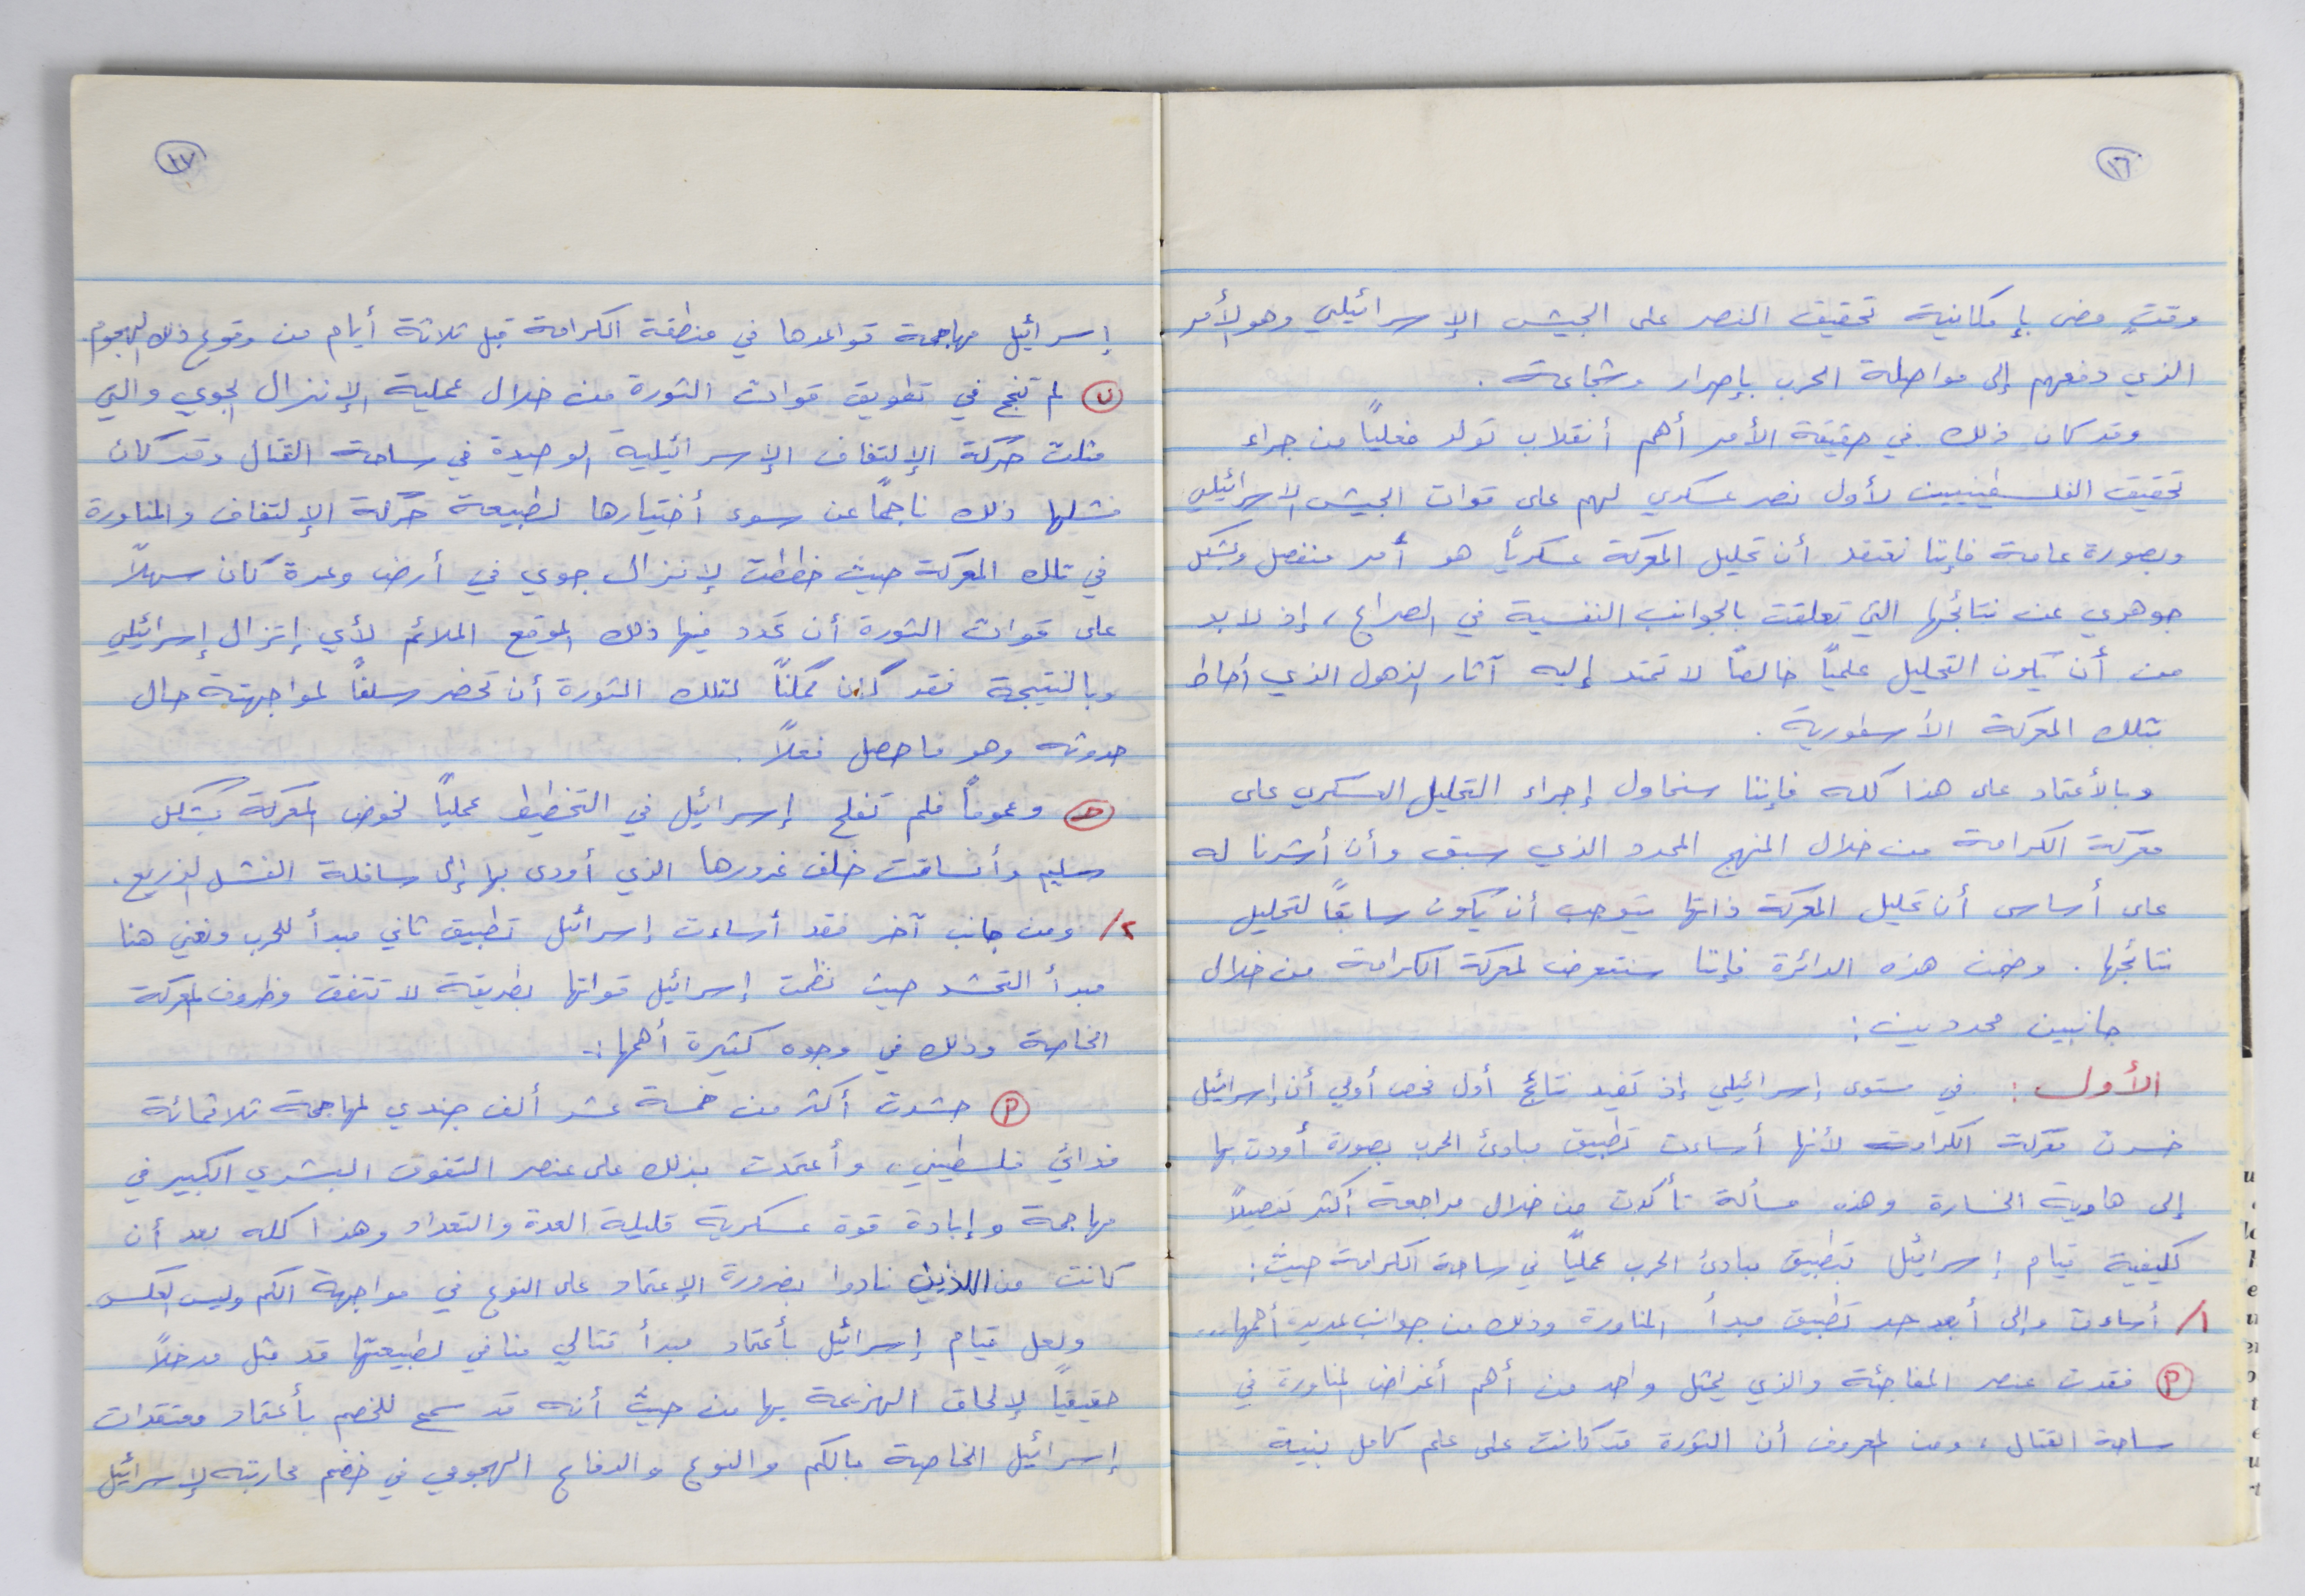 ١٦
وقتٍ مضى بإمكانية تحقيق النصر على الجيش الإسرائيلي وهو الأمر
الذي دفعهم إلى مواصلة الحرب بإصرار وشجاعة .
وقد كان ذلك في حقيقة الأمر أهم أنقلاب تولد فعلياً من جراء
تحقيق الفلسطينيين لأول نصر عسكري لهم على قوات الجيش الإسرائيلي
وبصورة عامة فإننا نعتقد أن تحليل المعركة عسكرياً هو أمر منفصل وبشكل
جوهري عن نتائجها التي تعلقت بالجوانب النفسية في الصراع ، إذ لا بد
من أن يكون التحليل علمياً خالصاً لا تمتد إليه آثار الذهول الذي أحاط
بتلك المعركة الأسطورية .
وبالأعتماد على هذا كله فإننا سنحاول إجراء التحليل العسكري على
معركة الكرامة من خلال المنهج المحدد الذي سبق وأن أشرنا له
على أساس أن تحليل المعركة ذاتها يتوجب أن يكون سابقاً لتحليل
نتائجها . وضمن هذه الدائرة فإننا سنتعرض لمعركة الكرامة من خلال
جانبين محددين :
الأول : في مستوى إسرائيلي إذ تفيد نتائج أول فحص أولي أن إسرائيل
خسرت معركة الكرامة لأنها أساءت تطبيق مبادئ الحرب بصورة أودت بها
إلى هاوية الخسارة وهذه مسألة تأكدت من خلال مراجعة أكثر تفصيلاً
لكيفية قيام إسرائيل بتطبيق مبادئ الحرب عملياً في ساحة الكرامة حيث :
١/ أساءت وإلى أبعد حد تطبيق مبدأ المناورة وذلك من جوانب عديدة أهمها...
أ فقدت عنصر المفاجئة والذي يمثل واحد من أهم أغراض المناورة في
ساحة القتال ، ومن المعروف أن الثورة قد كانت على علم كامل بنية
١٧
إسرائيل مهاجمة قواعدها في منطقة الكرامة قبل ثلاثة أيام من وقوع ذلك الهجوم.
ب لم تنجح في تطويق قوات الثورة من خلال عملية الإنزال الجوي والتي
مثلت حركة الإلتفاف الإسرائيلية الوحيدة في ساحة القتال وقد كان
فشلها ذلك ناجماً عن سوء أختيارها لطبيعة حركة الإلتفاف والمناورة
في تلك المعركة حيث خططت لإنزال جوي في أرض وعرة كان سهلاً
على قوات الثورة أن تحدد فيها ذلك الموقع الملائم لأي إنزال إسرائيلي
وبالنتيجة فقد كان ممكناً لتلك الثورة أن تحضر سلفاً لمواجهتة حال
حدوثه وهو ما حصل فعلاً .
حـ وعموماً فلم تفلح إسرائيل في التخطيط عملياً لخوض المعركة بشكل
سليم وأنساقت خلف غرورها الذي أودى بها إلى سافلة الفشل الذريع .
٢/ ومن جانب آخر فقد أساءت إسرائيل تطبيق ثاني مبدأ للحرب ونعني هنا
مبدأ التحشد حيث نظمت إسرائيل قواتها بطريقة لا تتفق وظروف المعركة
الخاصة وذلك في وجوه كثيرة أهمها :-
أ حشدت أكثر من خمسة عشر ألف جندي لمهاجمة ثلاثمائة
فدائي فلسطيني ، وأعتمدت بذلك على عنصر التفوق البشري الكبير في
مهاجمة وإبادة قوة عسكرية قليلة العدة والتعداد وهذا كله بعد أن
كانت من اللذين نادوا بضرورة الإعتماد على النوع في مواجهة الكم وليس العكس
ولعل قيام إسرائيل بأعتماد مبدأ قتالي منافي لطبيعتها قد مثل مدخلاً
حقيقياً لإلحاق الهزيمة بها من حيث أنه قد سمح للخصم بأعتماد معتقدات
إسرائيل الخاصة بالكم والنوع والدفاع الهجومي في خضم محاربته لإسرائيل